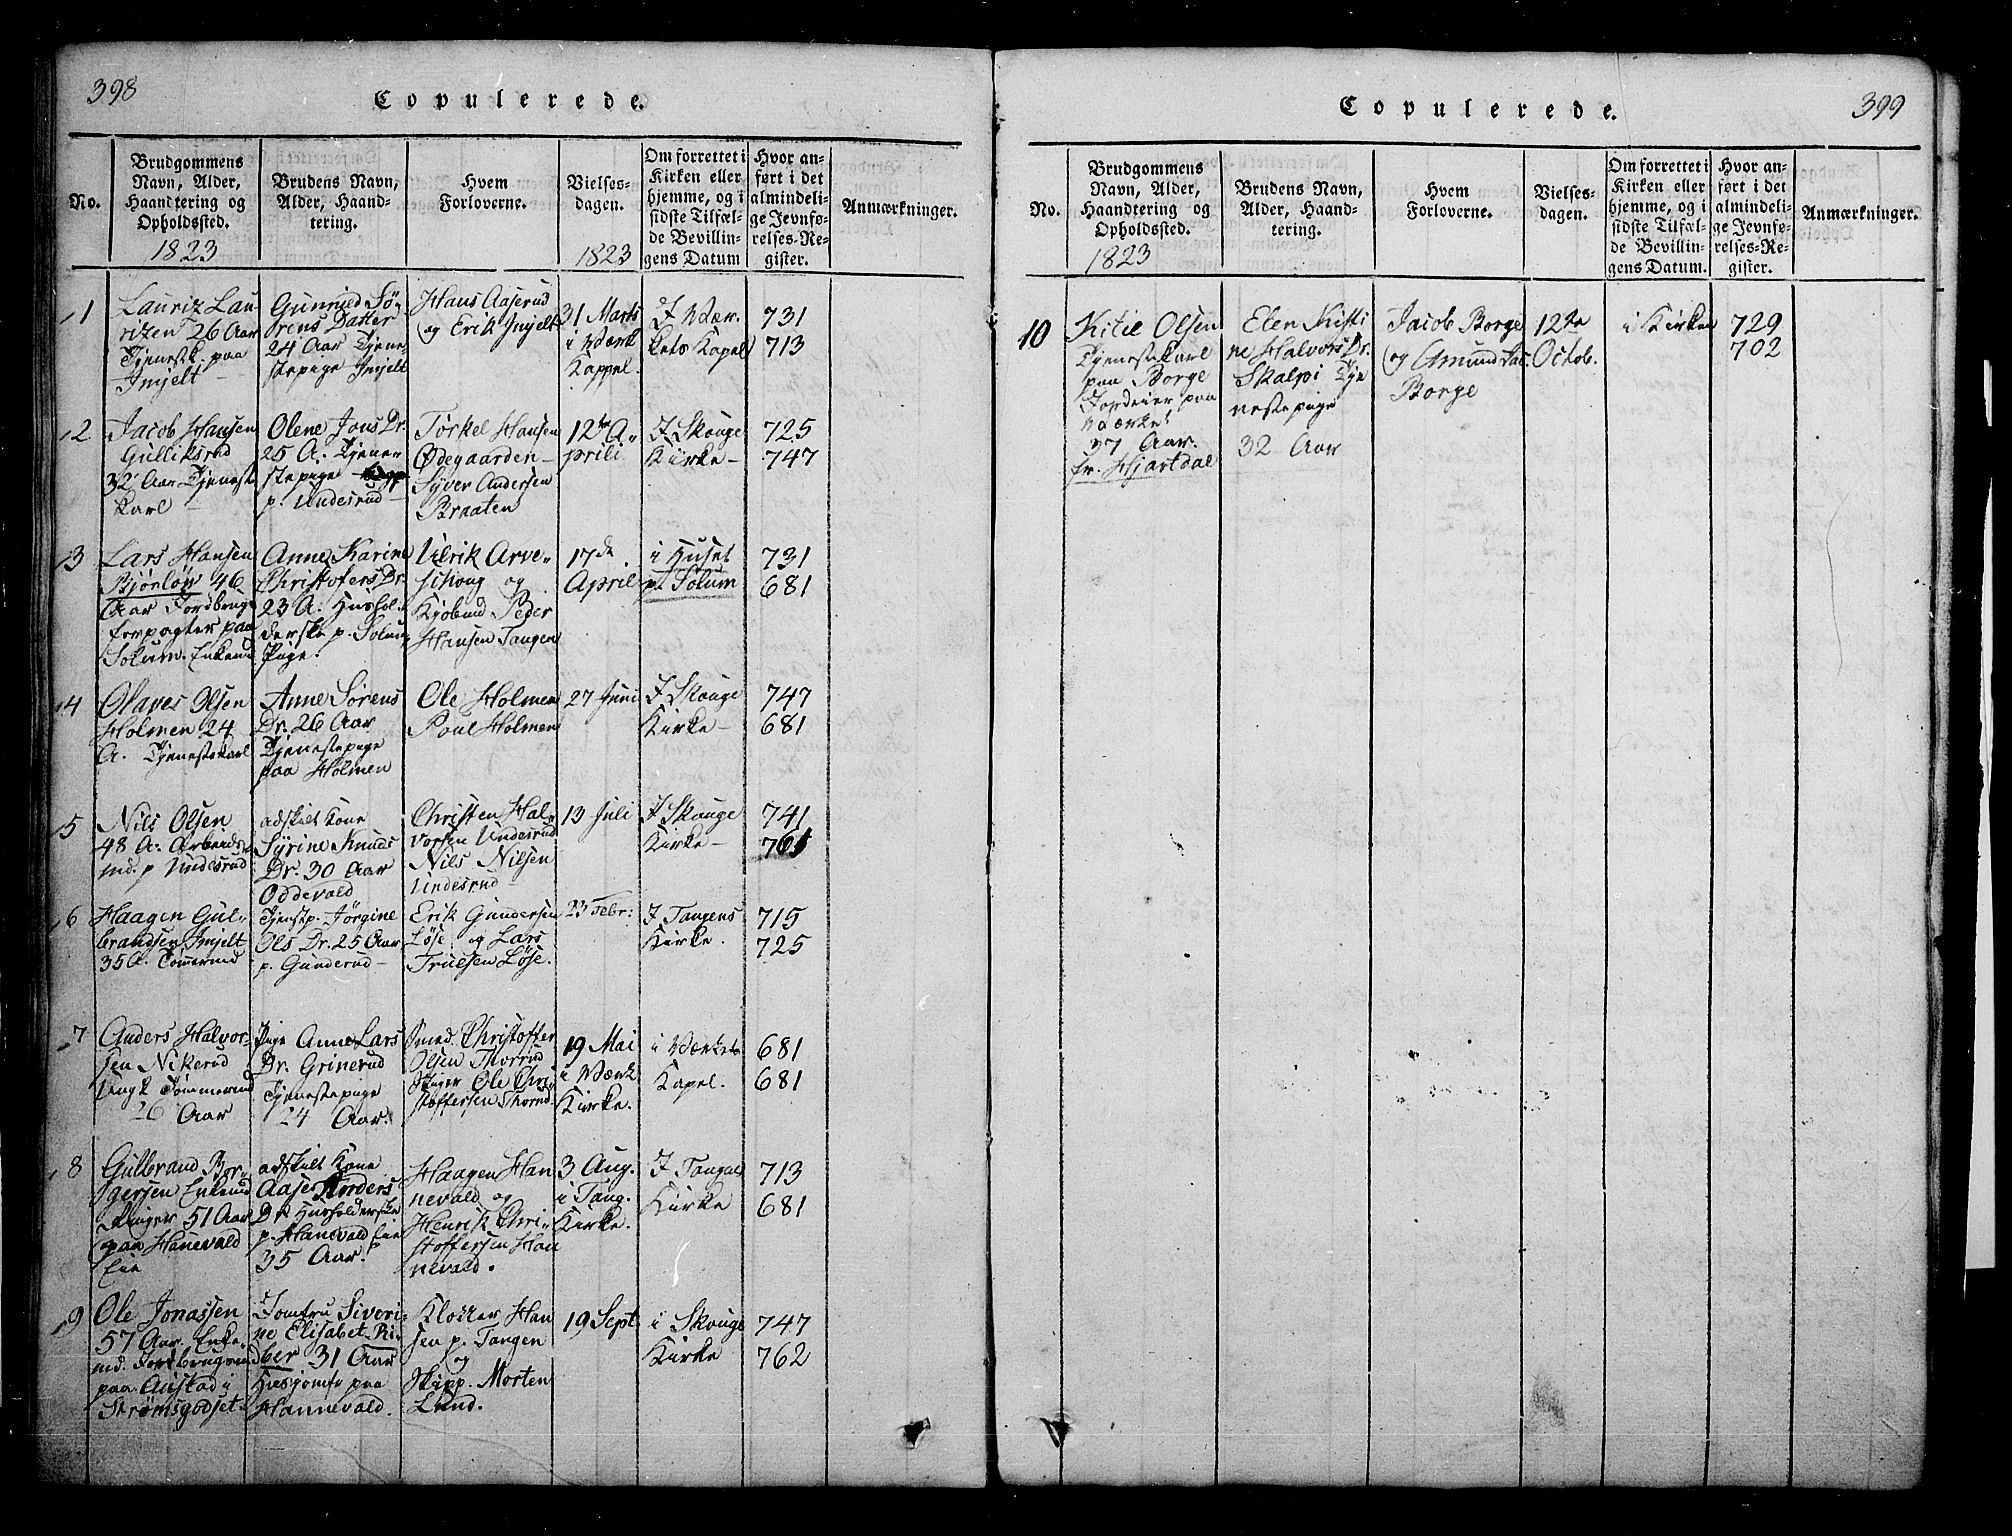 398
Copulerede.
No.
Brudgommens
Navn, Alder,
Haandtering og
Opholdssted.
1823
Brudens Navn,
Alder, Haand-
tering.
Hvem
Forloverne.
Vielses-
dagen.
1823
Om forrettet i
Kirken eller
hjemme, og i
sidste Tilfæl-
de Bevillin-
gens Datum
Hvor an-
ført i det
almindeli-
ge Jevnfø-
relses-Re-
gister.
Anmærkninger.
1
Lauriz Lau-
rizen 26 Aar
Tjenestk. paa
Injelt
Gunnild Sø-
rens Datter
24 Aar Tjene-
stepige Injelt
Hans Aaserud
og Erik Injelt
31 Marts
i Værk
Kappel.
I Vær-
kets Kapel
731
713
2
Jacob Hansen
Gulliksrud
32 Aar Tjeneste
Karl
Olene Jons Dr.
25 A. Tjene-
stepige
p. Undesrud
Torkel Hansen
Ødegaarden
Syver Andersen
Braaten
12te A-
prili
I Skouge
Kirke
725
747
3
Lars Hansen
Bjønløv 46
Aar Jordbrug
forpagter paa
Solum. Enkemd
Anne Karine
Christofers Dr.
23 A. Hushol-
derske p. Solum
Pige.
Ulrik Arve-
schoug og
Kjøbmd Peder
Hansen Tangen
17de
April
i Huset
p. Solum
731
681
4
Olaves Olsen
Holmen 24
A. Tjenestekarl
Anne Sørens
Dr. 26 Aar
Tjenestepige
paa Holmen
Ole Holmen
Poul Holmen
27 Juni
I Skouge
Kirke
747
681
5
Nils Olsen
48 A. Arbeids
md. p Undesrud
adskilt Kone
Syrine Knuds
Dr. 30 Aar
Oddevald
Christen Hal-
vorsen Undesrud
Nils Nilsen
Undesrud
13 Juli
I Skouge
Kirke
741
761
6
Haagen Gul-
brandsen Injelt
35 A. Tømmermd
Tjenestp. Jørgine
Ols Dr. 25 Aar
p. Gunderud
Erik Gundersen
Løse. og Lars
Truesen Løse.
23 Febr:
I Tangens
Kirke.
715
725
7
Anders Halvor-
sen Nikerud
Ungk Tømmermd
26 Aar
Pige Anne Lars
Dr. Grinerud
Tjenestepige
24 Aar.
Smed. Christoffer
Olsen Thorrud
Ole Chri-
stoffersen Thorrud
19 Mai
i Værk
Kirke.
i Værkets
Kapel.
681
681
8
Gulbrand Bør-
gersen Enkemd
51 Aar
paa Hanevald
Eie
adskilt Kone
Aase Tordens
Dr Husholderske
p. Hanevald Eie
35 Aar.
Haagen Han
nevald og
Henrik Chri-
stoffersen Han
nevald.
3 Aug.
i Tang.
Kirke.
I Tangens
Kirke
713
681
9
Ole Jonassen
57 Aar. Enke-
md. Jordbrugsmd
paa Austad i
Strømsgodset
Jomfru Siveri-
ne Elisabet Ri-
ber 31 Aar
Husjomfr paa
Hannevald.
Klokker Han
sen p. Tangen
og
Skipp. Morten
Lund.
19 Sept.
i Skouge
Kirke
747
762
Copulerede.
399
No.
Brudgommens
Navn, Alder,
Haandtering og
Opholdssted.
1823
Brudens Navn,
Alder, Haand-
tering.
Hvem
Forloverne.
Vielses-
dagen.
Om forrettet i
Kirken eller
hjemme, og i
sidste Tilfæl-
de Bevillin-
gens Datum.
Hvor an-
ført i det
almindeli-
ge Jevnfø-
relses-Re-
gister.
Anmærkninger.
10
Kitil Olsen
Tjenestekarl
paa Borge
Jordeier paa
Værket
37 Aar.
fr. Hjartdal
Elen Kisti
ne Halvors Dr.
Skalpi Tje
nestepige
32 Aar
Jacob Borge
og Amund Jac.
Borge
12te
Octob.
i Kirke
729
702